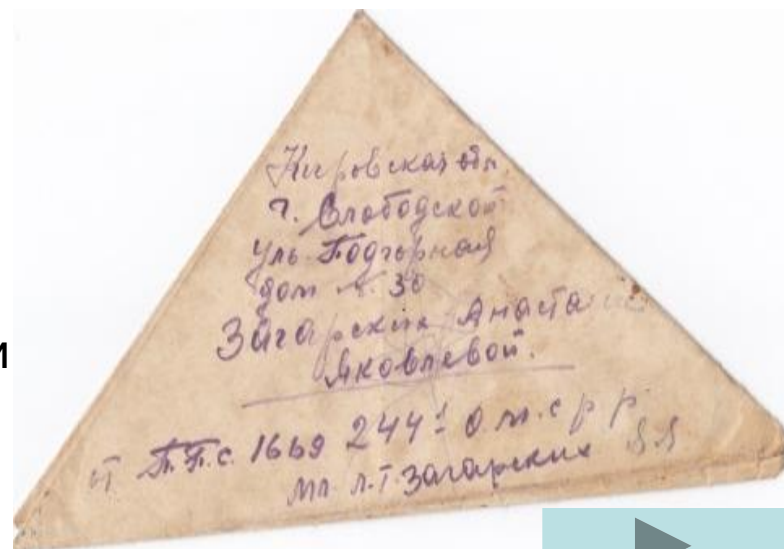 Кировская обл.
г. Слободской
уль. Подгорная
дом №. 30
Загарских Анастасие
Яковлевой.
и
от П.П.с. 1669 244 о.м.с р р
мл. л.т. Загарских